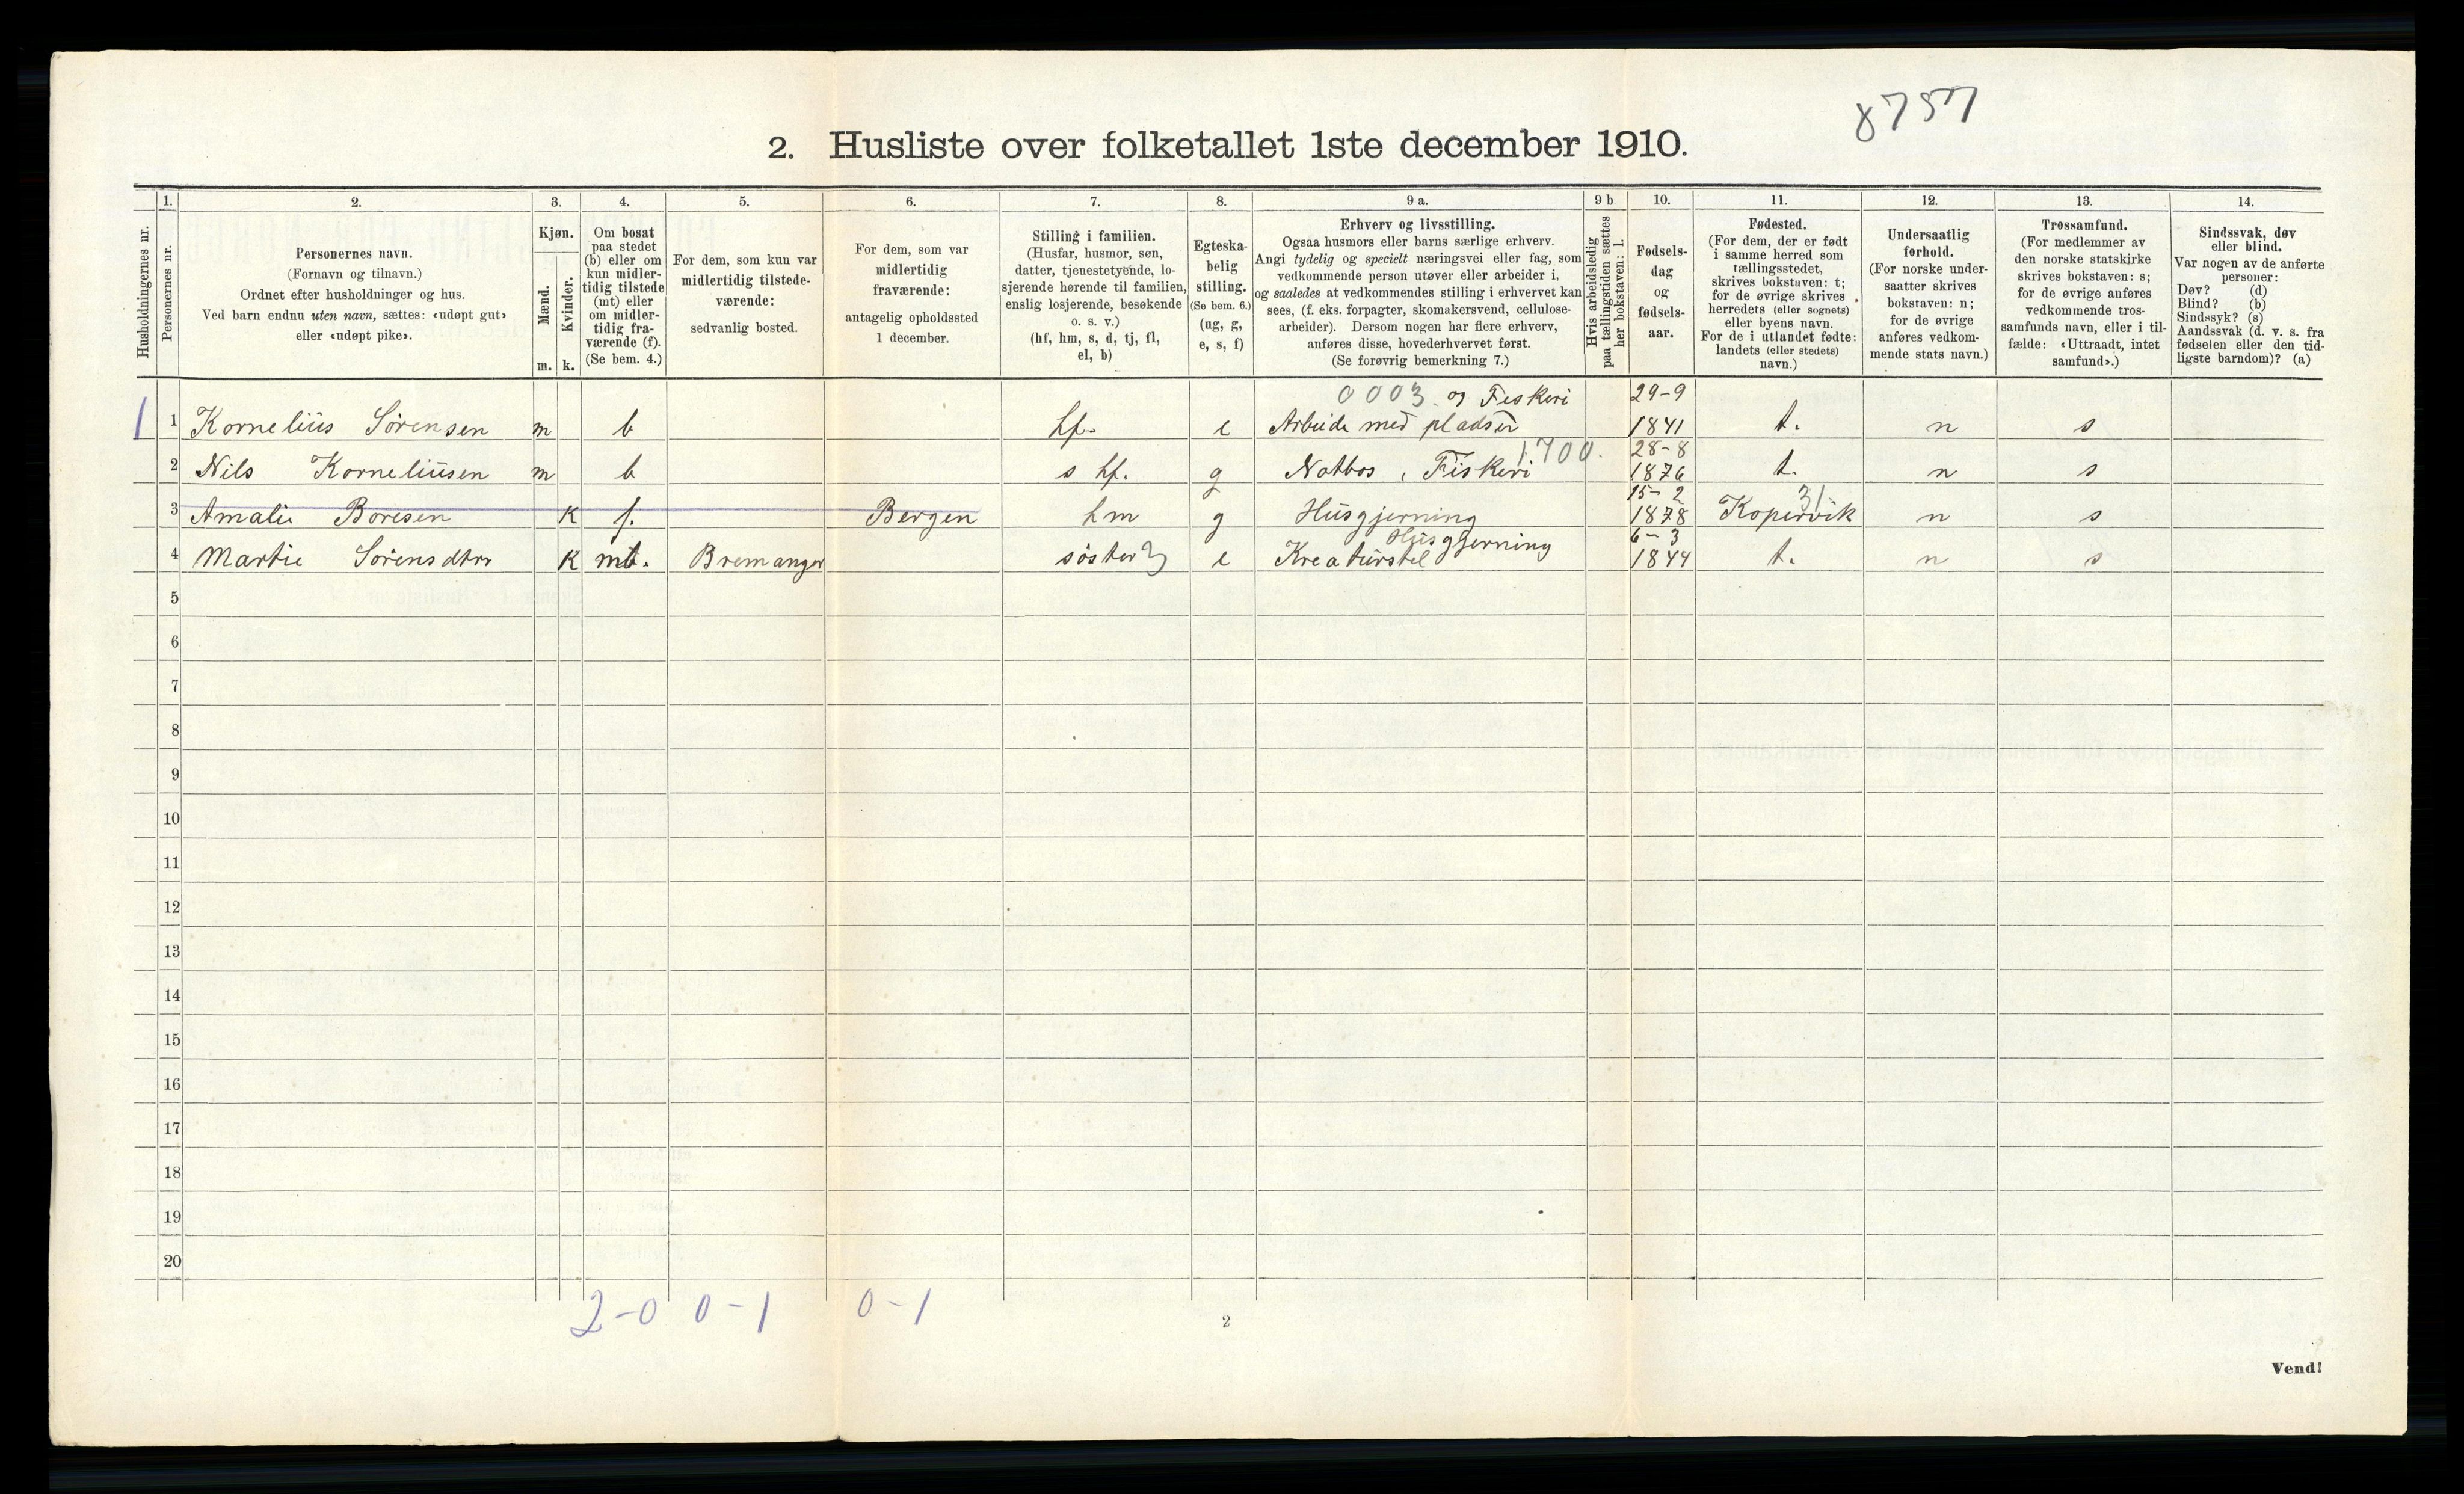 8757
2. Husliste over folketallet 1ste december 1910.
Husholdningernes nr.
1.
Personernes nr.
2.
Personernes navn.
(Fornavn og tilnavn.)
Ordnet efter husholdninger og hus.
Ved barn endnu uten navn, sættes: «udøpt gut»
eller «udøpt pike».
3.
Kjøn.
Mænd.
Kvinder.
m. k.
4.
Om bosat
paa stedet
(b) eller om
kun midler-
tidig tilstede
(mt) eller
om midler-
tidig fra-
værende (f).
(Se bem. 4.)
5.
For dem, som kun var
midlertidig tilstede-
værende:
sedvanlig bosted.
6.
For dem, som var
midlertidig
fraværende:
antagelig opholdssted
1 december.
7.
Stilling i familien.
(Husfar, husmor, søn,
datter, tjenestetyende, lo-
sjerende hørende til familien,
enslig losjerende, besøkende
o. s. v.)
(hf, hm, s, d, tj, fl,
el, b)
8.
Egteska-
belig
stilling.
(Se bem. 6.)
(ug, g,
e, s, f)
9 a.
Erhverv og livsstilling.
Ogsaa husmors eller barns særlige erhverv.
Angi tydelig og specielt næringsvei eller fag, som
vedkommende person utøver eller arbeider i,
og saaledes at vedkommendes stilling i erhvervet kan
sees, (f. eks. forpagter, skomakersvend, cellulose-
arbeider). Dersom nogen har flere erhverv,
anføres disse, hovederhvervet først.
(Se forøvrig bemerkning 7.)
9 b
Hvis arbeidsledig
paa tællingstiden sættes
her bokstaven: l.
10.
Fødsels-
dag
og
fødsels-
aar.
11.
Fødested.
(For dem, der er født
i samme herred som
tællingsstedet,
skrives bokstaven: t;
for de øvrige skrives
herredets (eller sognets)
eller byens navn.
For de i utlandet fødte:
landets (eller stedets)
navn.)
12.
Undersaatlig
forhold.
(For norske under-
saatter skrives
bokstaven: n;
for de øvrige
anføres vedkom-
mende stats navn.)
13.
Trossamfund.
(For medlemmer av
den norske statskirke
skrives bokstaven: s;
for de øvrige anføres
vedkommende tros-
samfunds navn, eller i til-
fælde: «Uttraadt, intet
samfund».)
14.
Sindssvak, døv
eller blind.
Var nogen av de anførte
personer:
Døv? (d)
Blind? (b)
Sindssyk? (s)
Aandssvak (d. v. s. fra
fødselen eller den tid-
ligste barndom)? (a)
0003 og Fiskeri 29-9
1 1 Kornelius Sörensen m b hf. e Arbeide med pladsen 1841 t. n s
1700. 28-8
2 Nils Korneliusen m b s hf. g Notbas, Fiskeri 1876 t. n s
15-2 31
3 Amalie Boresen K f. Bergen hm g Husgjerning 1878 Kopervik n s
Husgjerning 6-3
4 Martie Sörensdtr K mt. Bremanger söster 3 e Kreaturstel 1844 t. n s
5
6
7
8
9
10
11
12
13
14
15
16
17
18
19
20
2-0 0-1 0-1
2
Vend!